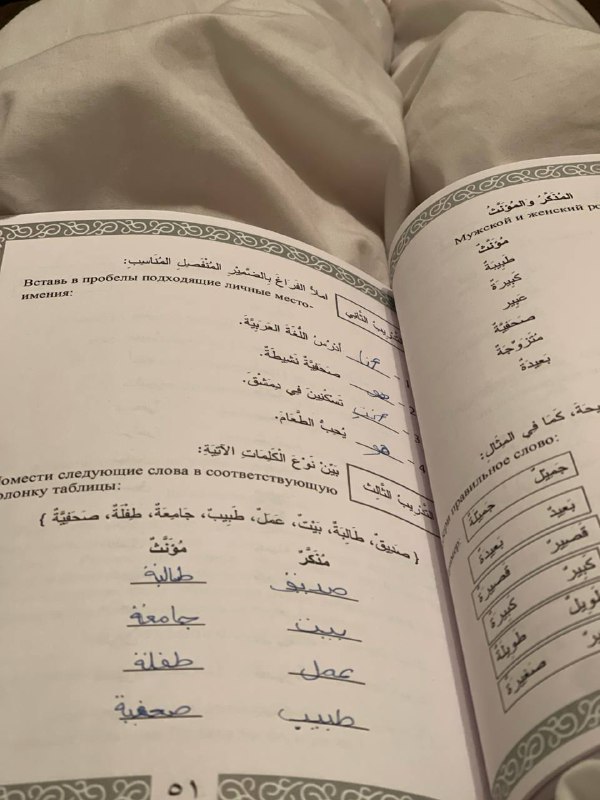 التَّدْرِيبُ الثَّانِي
املأ الفَرَاغَ بِالضَّمِيْرِ المُنْفَصِلِ المُنَاسِبِ:
Вставь в пробелы подходящие личные место-
имения:
1 - أنا أَدْرُسُ اللُّغَةَ العَرَبِيَّةَ.
2 - صَحَفِيَّةٌ نَشِيْطَةٌ.
3 - أنتِ تَسْكُنِيْنَ فِي دِمَشْقَ.
4 - هو يُحِبُّ الطَّعَامَ.
التَّدْرِيبُ الثَّالِثُ
بَيِّنْ نَوْعَ الْكَلِمَاتِ الآتِيَةِ:
Помести следующие слова в соответствующую
колонку таблицы:
{ صَدِيقٌ، طَالِبَةٌ، بَيْتٌ، عَمَلٌ، طَبِيبٌ، جَامِعَةٌ، طِفْلَةٌ، صَحَفِيَّةٌ }
مُذَكَّرٌ مُؤَنَّثٌ
صديق طالبة
بيت جامعة
عمل طفلة
طبيب صحفية
٥١
المُذَكَّرُ والمُؤَنَّثُ
Мужской и женский ро
مُؤَنَّثٌ
طَبِيبَةٌ
كَبِيرَةٌ
عَبِير
صَحَفِيَّةٌ
مُتَزَوِّجَةٌ
بَعِيدَةٌ
كَمَا فِي المِثَالِ:
правильное слово:
جَمِيلٌ جَمِيْلَةٌ
بَعِيدٌ بَعِيدَةٌ
قَصِيرٌ قَصِيرَةٌ
كَبِيرٌ كَبِيرَةٌ
طَوِيلٌ طَوِيلَةٌ
صَغِيرَةٌ